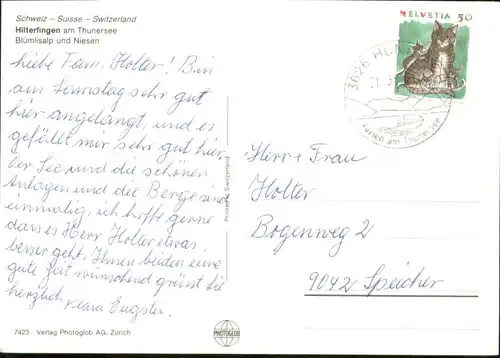 Schweiz – Suisse – Switzerland
Hilterfingen am Thunersee
Blümlisalp und Niesen
Liebe Fam. Holter! Bin
am Samstag sehr gut
hier angelangt, und es
gefällt mir sehr gut hier.
Der See und die schönen
Anlagen und die Berge sind
einmalig, ich hoffe gerne
dass es Herr Holter etwas
besser geht. Ihnen beiden eine
gute Zeit wünschend grüsst Sie
herzlich Klara Eugster
7423 Verlag Photoglob AG, Zürich
Printed in Switzerland
PHOTOGLOB
HELVETIA 50
3626
Ferien am Thunersee
Herr + Frau
Holter
Bogenweg 2
9042 Speicher